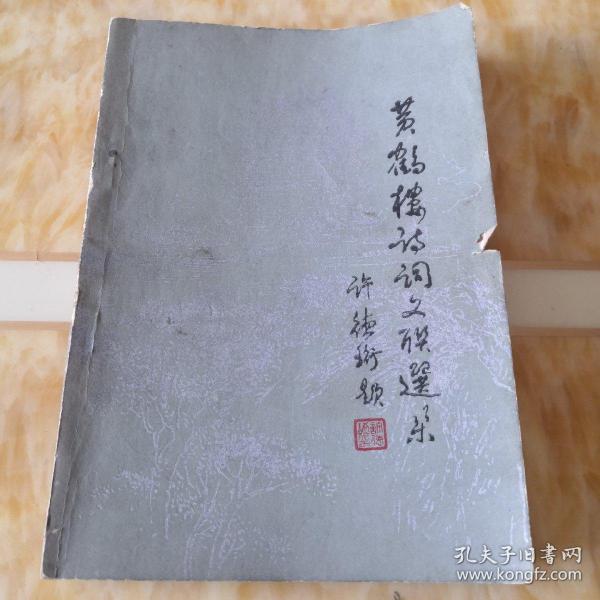 黄鹤楼诗词文联选集
许德珩题
孔夫子旧书网
www.kongfz.com